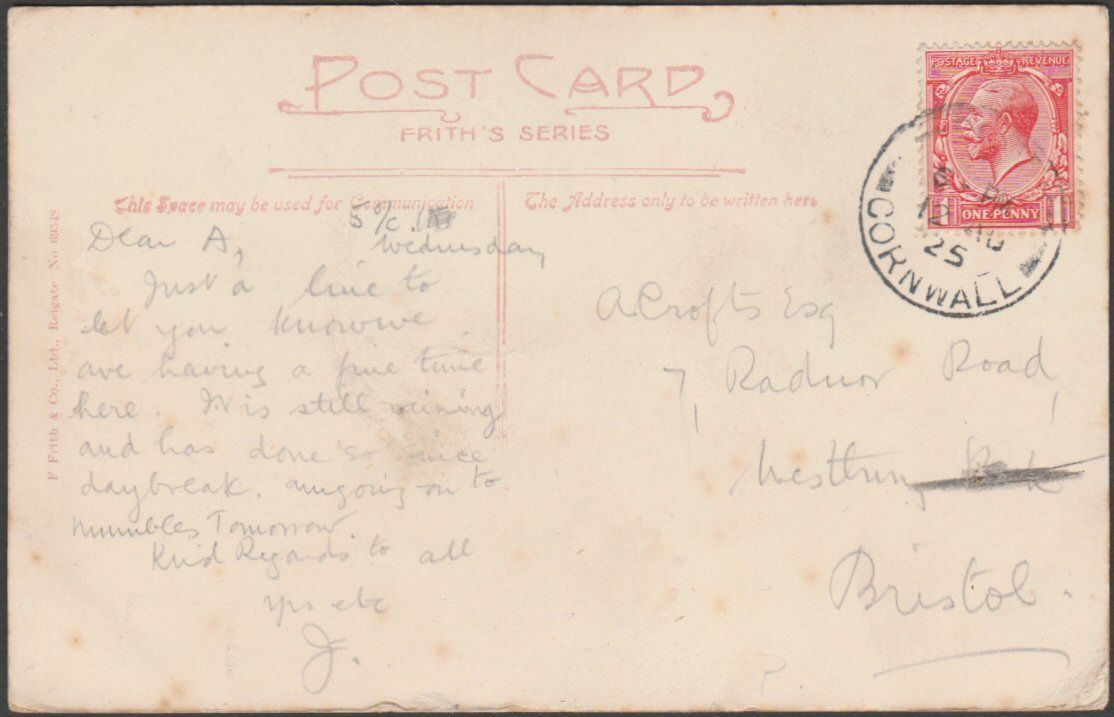 POST CARD
FRITH'S SERIES
This Space may be used for Communication
The Address only to be written here
F Frith & Co., Ltd., Reigate No 69548
POSTAGE REVENUE
1 ONE PENNY 1
PM
12 AU
25
CORNWALL
Wednesday
Dear A,
Just a line to
let you know we
are having a fine time
here. It is still raining
and has done so since
daybreak. am going on to
Mumbles Tomorrow.
Kind Regards to all
yrs etc
J.
A Crofts Esq
7, Radnor Road,
Westbury Park
Bristol.